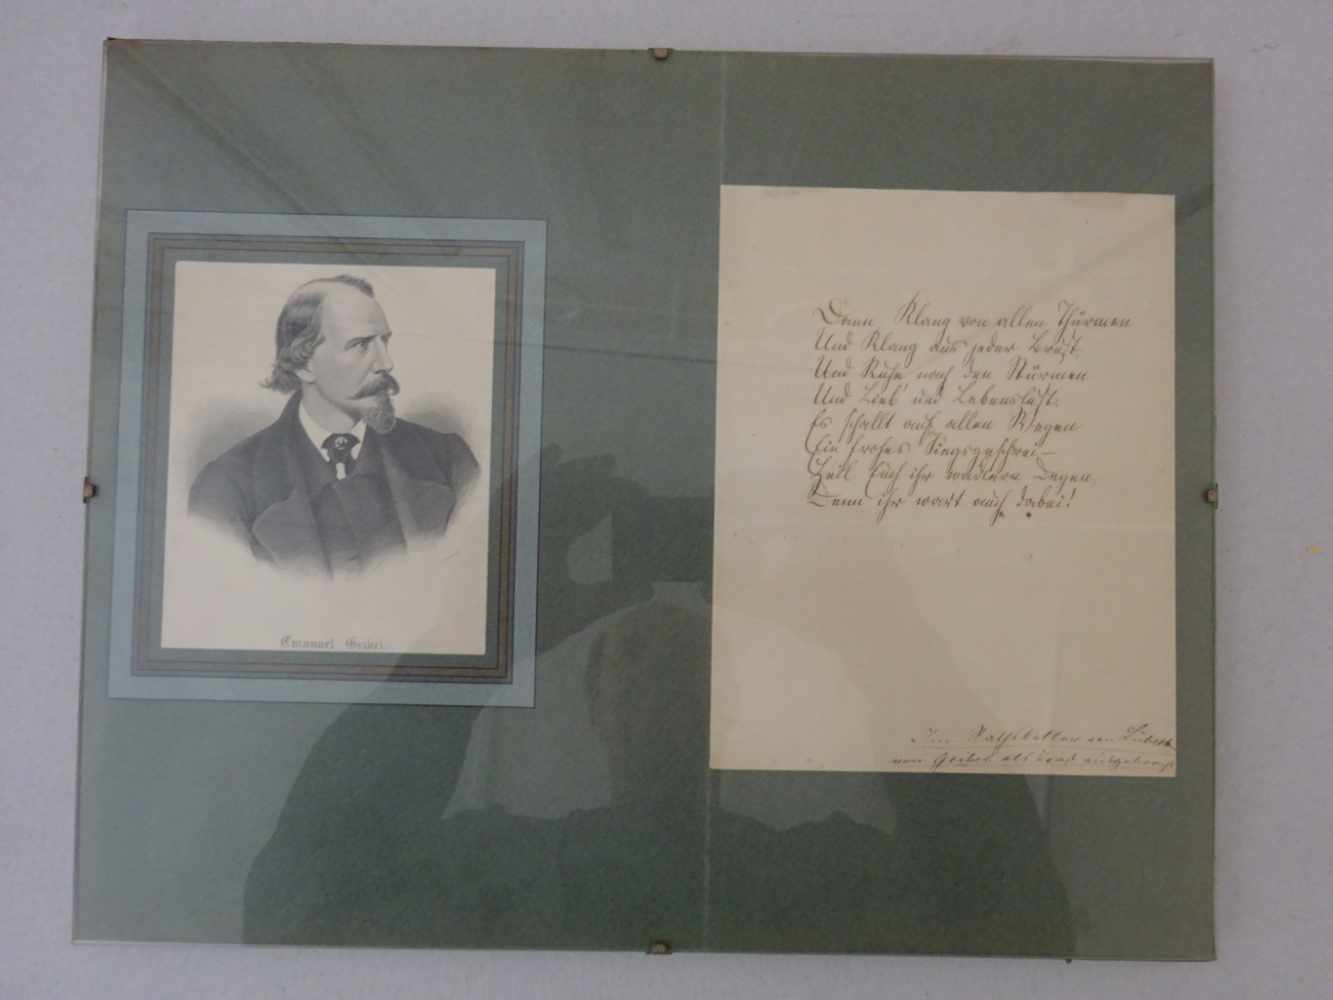 Emanuel Geibel.
Dann Klang von allen Thürmen
Und Klang aus jeder Brust,
Und Ruhe nach den Stürmen
Und Lieb' und Lebenslust.
Es schallt auf allen Wegen
Ein frohes Siegsgeschrei –
Heil Euch ihr wackern Degen,
Denn ihr wart auch dabei!
Im Rathskeller von Lübeck
von Geibel als Toast ausgebracht